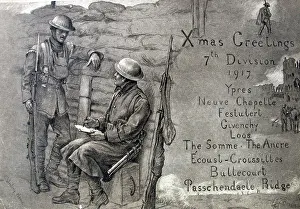 X'mas Greetings
7th Division
1917
Ypres
Neuve Chapelle
Festubert
Givenchy
Loos
The Somme - The Ancre
Ecoust-Croisselles
Bullecourt
Passchendaele Ridge